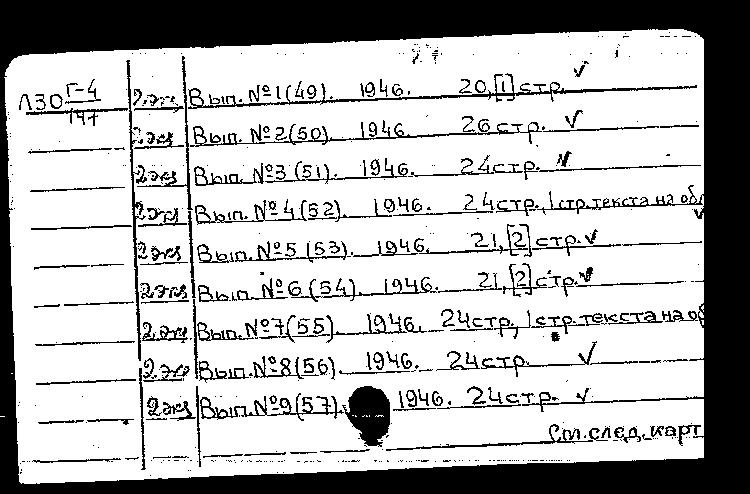 Л30 Г-4/147 2 экз Вып. №1(49). 1946. 20,[1] стр. ✓
2 экз Вып. №2(50). 1946. 26 стр. ✓
2 экз Вып. №3(51). 1946. 24 стр. ✓
2 экз Вып. №4(52). 1946. 24 стр., 1 стр. текста на обл
2 экз Вып. №5(53). 1946. 21,[2] стр. ✓
2 экз Вып. №6(54). 1946. 21,[2] стр. ✓
2 экз Вып. №7(55). 1946. 24 стр., 1 стр. текста на об
2 экз Вып. №8(56). 1946. 24 стр. ✓
2 экз Вып. №9(57). 1946. 24 стр. ✓
См. след. карт